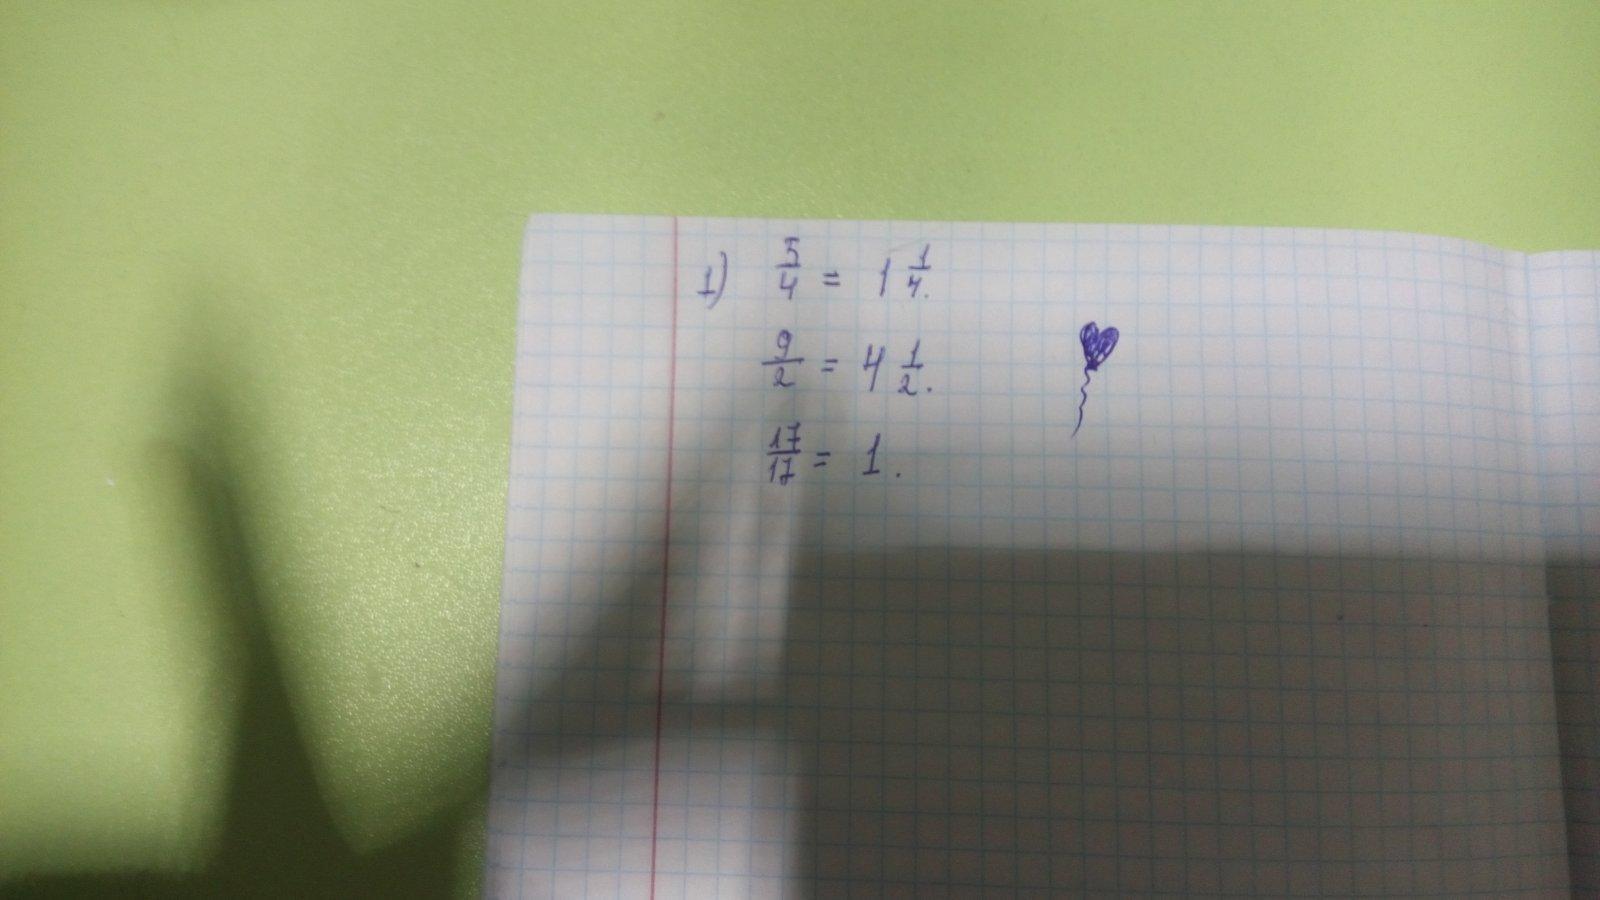 1) 5/4 = 1 1/4.
9/2 = 4 1/2.
17/17 = 1.